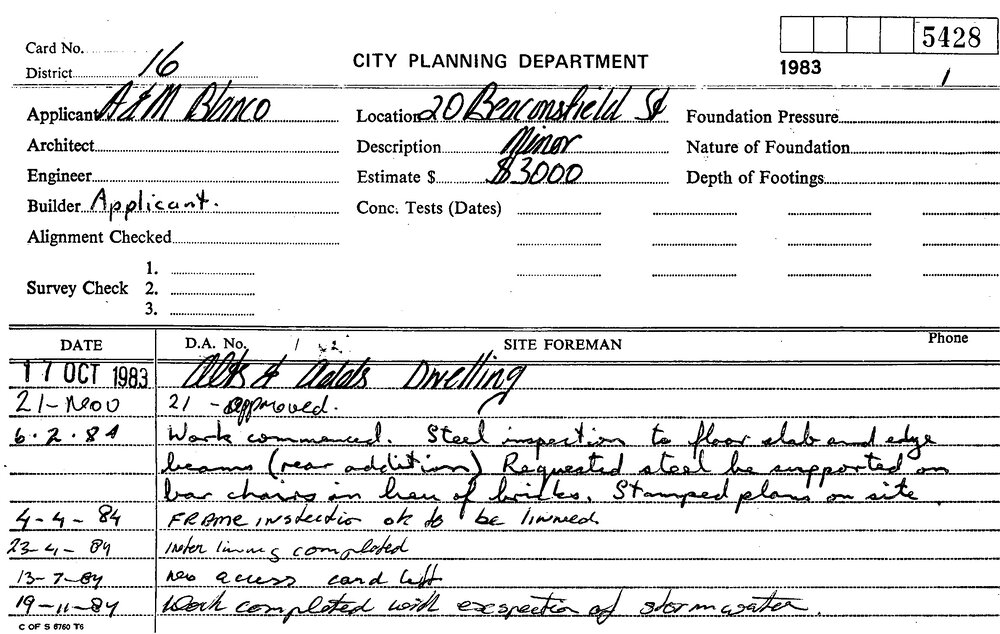 5428
Card No.
District 16
CITY PLANNING DEPARTMENT
1983
1
Applicant A & M Blanco
Location 20 Beaconsfield St
Foundation Pressure
Architect
Description Minor
Nature of Foundation
Engineer
Estimate $ $3000
Depth of Footings
Builder Applicant.
Conc. Tests (Dates)
Alignment Checked
1.
Survey Check 2.
3.
DATE D.A. No. SITE FOREMAN Phone
17 OCT 1983 Alts & Adds Dwelling
21-Nov 21 - approved.
6.2.84 Work commenced. Steel inspection to floor slab and edge
beams (rear addition) Requested steel be supported on
bar chairs in lieu of bricks. Stamped plans on site.
4-4-84 FRAME instectio ok to be linned.
23-4-84 inter linning completed
13-7-84 no access card left
19-11-84 Work completed with exspection of stormwater.
C OF S 6760 T6